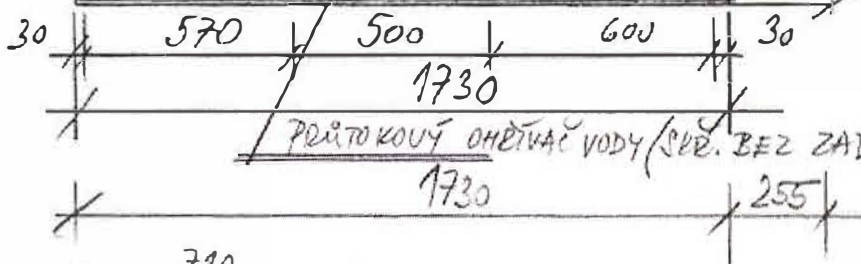 30 570 500 600 30
1730
PRŮTOKOVÝ OHŘÍVAČ VODY (SKŘ. BEZ ZAD
1730 255
710